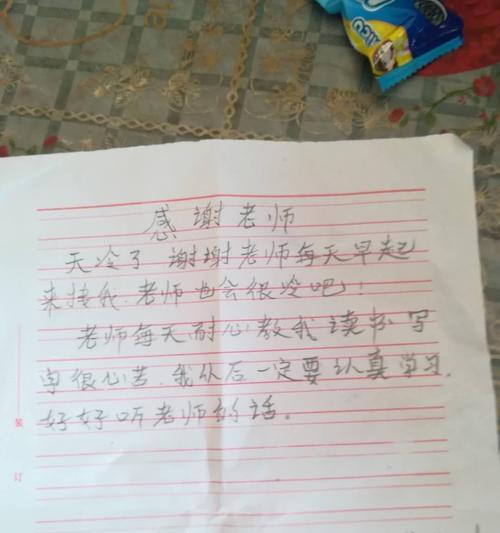 感谢老师
天冷了 谢谢老师每天早起
来接我.老师也会很冷吧！
老师每天耐心教我读书写
字很心苦.我从后一定要认真学习.
好好听老师的话。
装
订